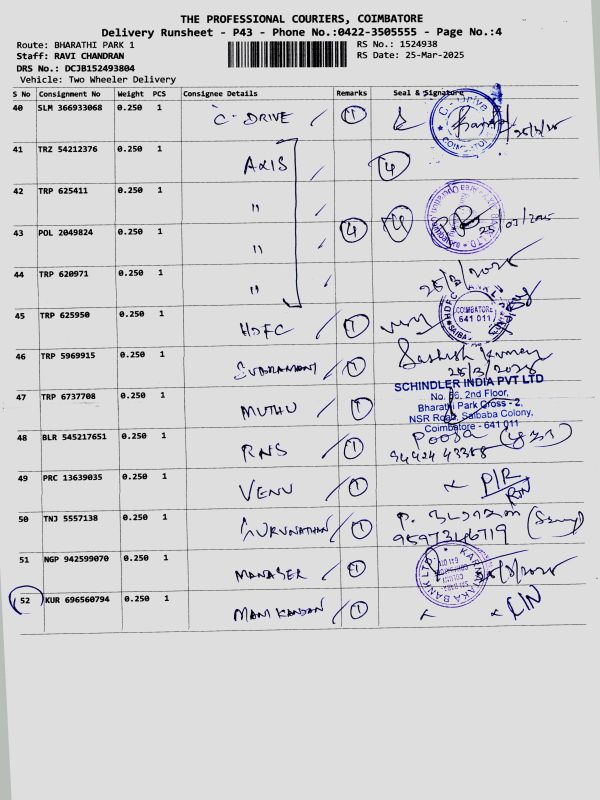 THE PROFESSIONAL COURIERS, COIMBATORE
Delivery Runsheet - P43 - Phone No.:0422-3505555 - Page No.:4
Route: BHARATHI PARK 1
RS No.: 1524938
Staff: RAVI CHANDRAN
RS Date: 25-Mar-2025
DRS No.: DCJB152493804
Vehicle: Two Wheeler Delivery
S No Consignment No Weight PCS Consignee Details Remarks Seal & Signature
40 SLM 366933068 0.250 1 C-DRIVE / 1
C-Drive COIMBATORE
41 TRZ 54212376 0.250 1 AXIS / 4
42 TRP 625411 0.250 1 " /
43 POL 2049824 0.250 1 " / 4 4 25/03/2025
44 TRP 620971 0.250 1 " /
25/3/2025
45 TRP 625950 0.250 1 HDFC / 1
HDFC BANK COIMBATORE 641 011 SAIBA
46 TRP 5969915 0.250 1 SUBRAMANI / 1 Sathish Kumar
25/3/2025
47 TRP 6737708 0.250 1 MUTHU / 1
SCHINDLER INDIA PVT LTD
No. 66, 2nd Floor,
Bharathi Park Cross - 2,
NSR Road, Saibaba Colony,
Coimbatore - 641 011
48 BLR 545217651 0.250 1 RNS / 1 Pooja
94424 43388
49 PRC 13639035 0.250 1 VENU / 1 P/R
50 TNJ 5557138 0.250 1 GURUNATHAN / 1 P.
9597346719
51 NGP 942599070 0.250 1 MANAGER / 1
KARNATAKA BANK LTD
52 KUR 696560794 0.250 1 MANIKANDAN / 1